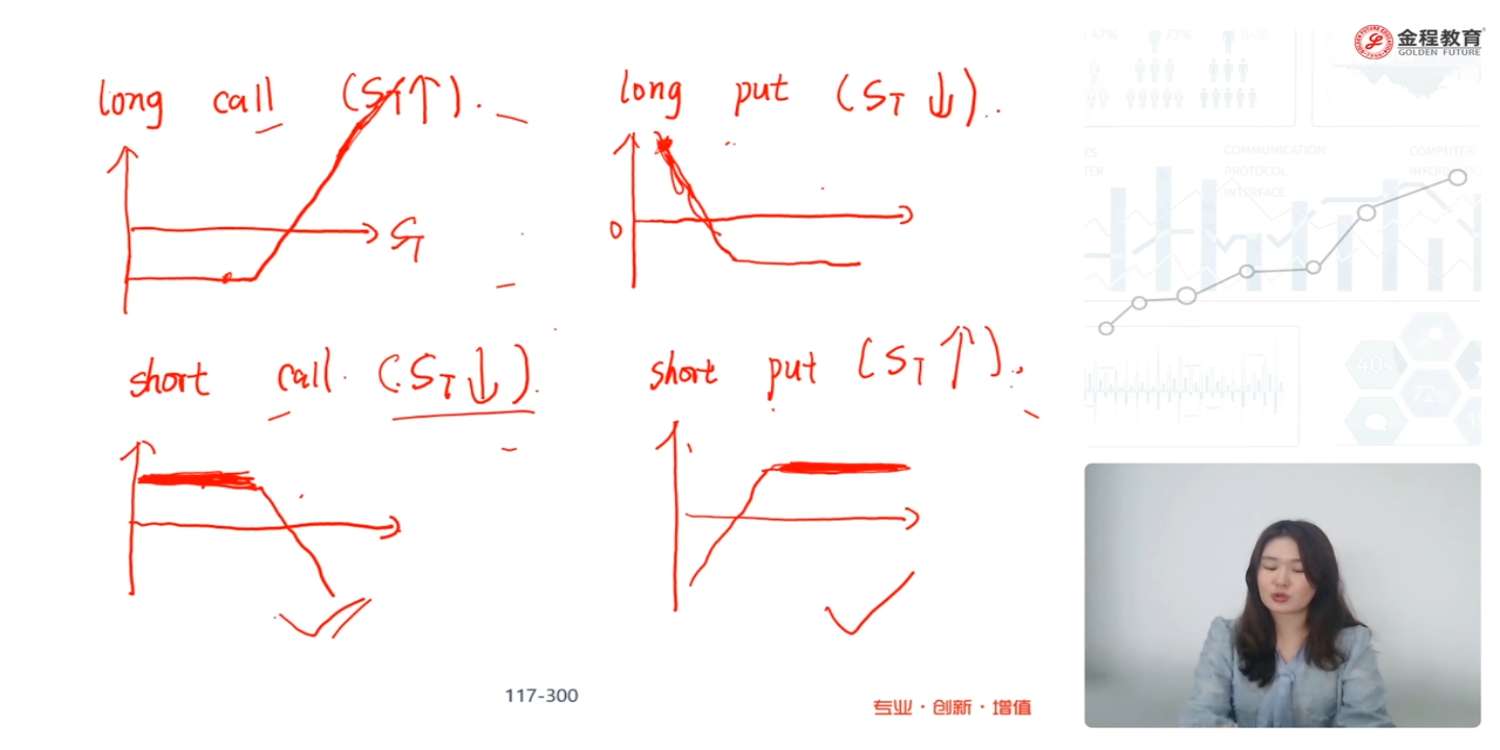 金程教育
GOLDEN FUTURE
long call (ST↑).
long put (ST↓).
ST
0
short call. (ST↓).
short put (ST↑).
COMMUNICATION
PROTOCOL
INTERFACE
COMPUTER
117-300
专业·创新·增值